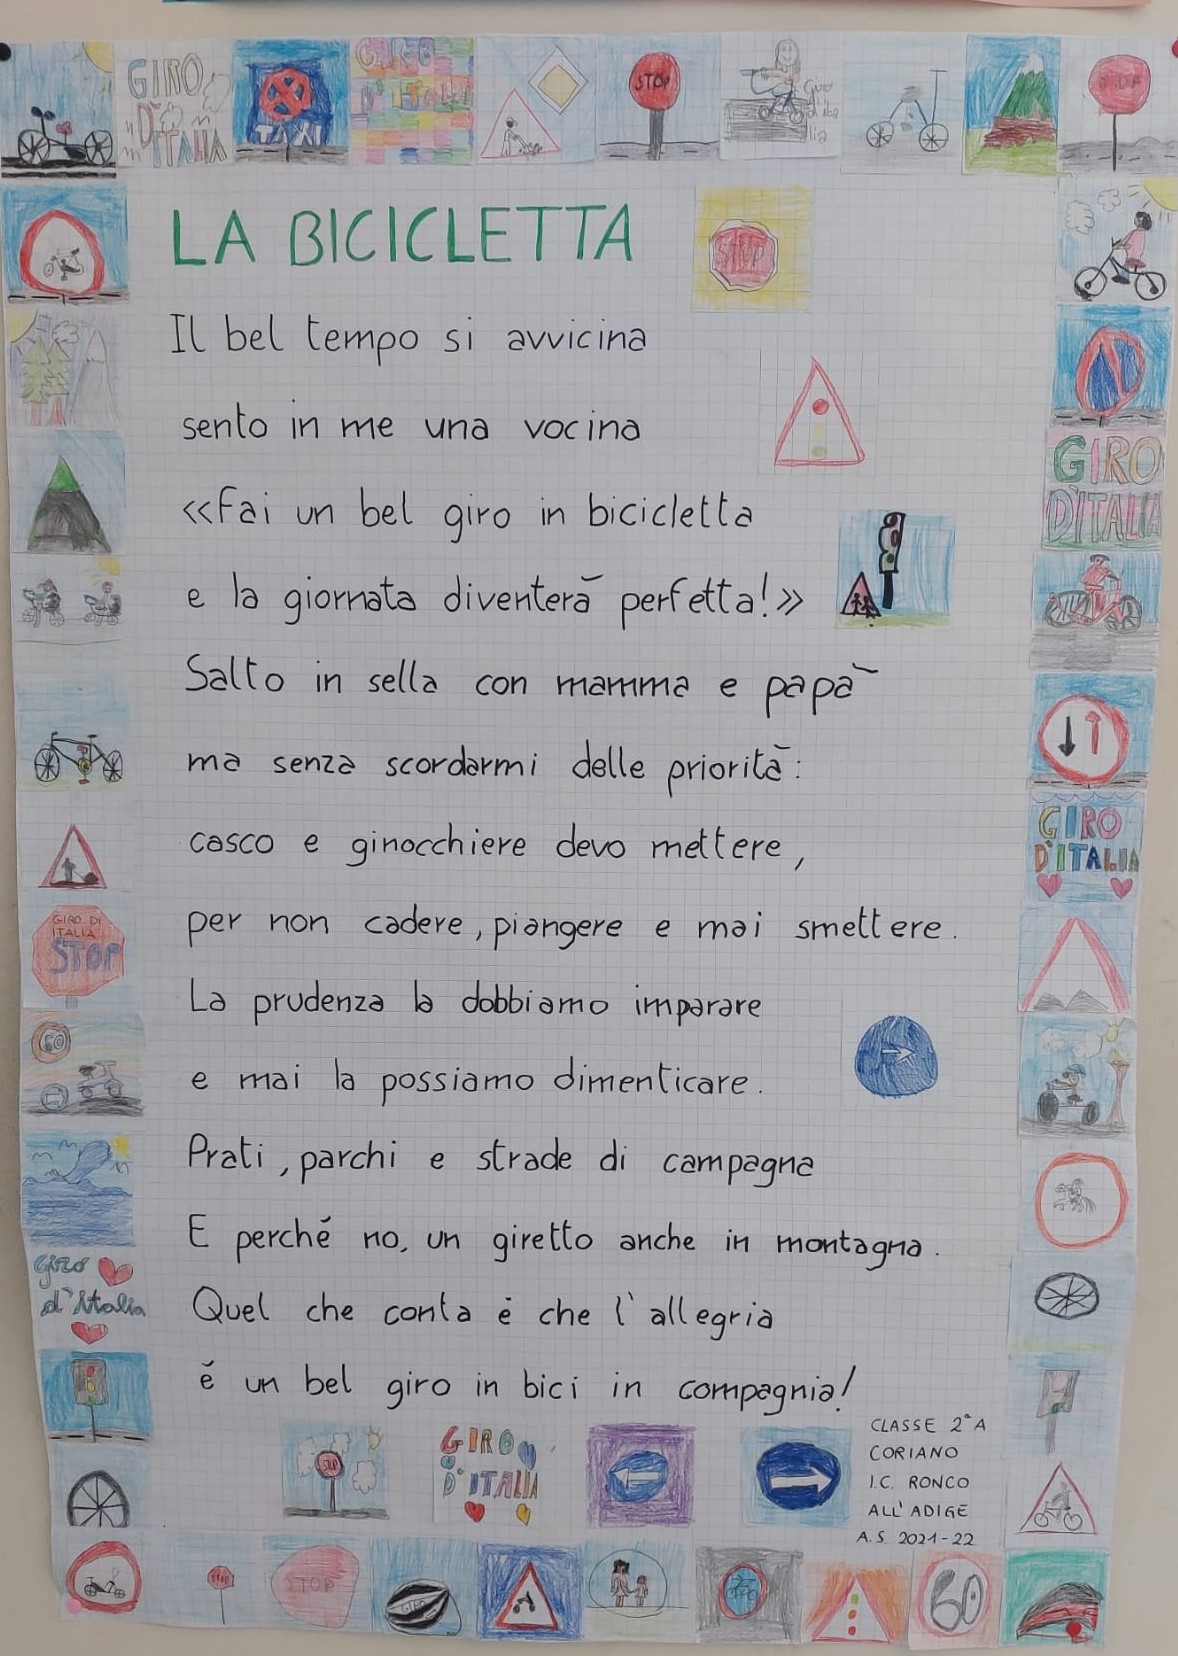 GIRO
D'ITALIA
TAXI
GIRO
D'ITALIA
STOP
Giro
d'Ita
lia
STOP
LA BICICLETTA
STOP
Il bel tempo si avvicina
sento in me una vocina
«Fai un bel giro in bicicletta
e la giornata diventerà perfetta!»
Salto in sella con mamma e papà
ma senza scordarmi delle priorità:
casco e ginocchiere devo mettere,
per non cadere, piangere e mai smettere.
La prudenza la dobbiamo imparare
e mai la possiamo dimenticare.
Prati, parchi e strade di campagna
E perché no, un giretto anche in montagna.
Quel che conta è che l'allegria
é un bel giro in bici in compagnia!
CLASSE 2ªA
CORIANO
I.C. RONCO
ALL'ADIGE
A.S. 2021-22
GIRO
D'ITALIA
GIRO
D'ITALIA
GIRO DI
ITALIA
STOP
60
giro
d'Italia
STOP
GIRO
D'ITALIA
STOP
STOP
GIRO
60